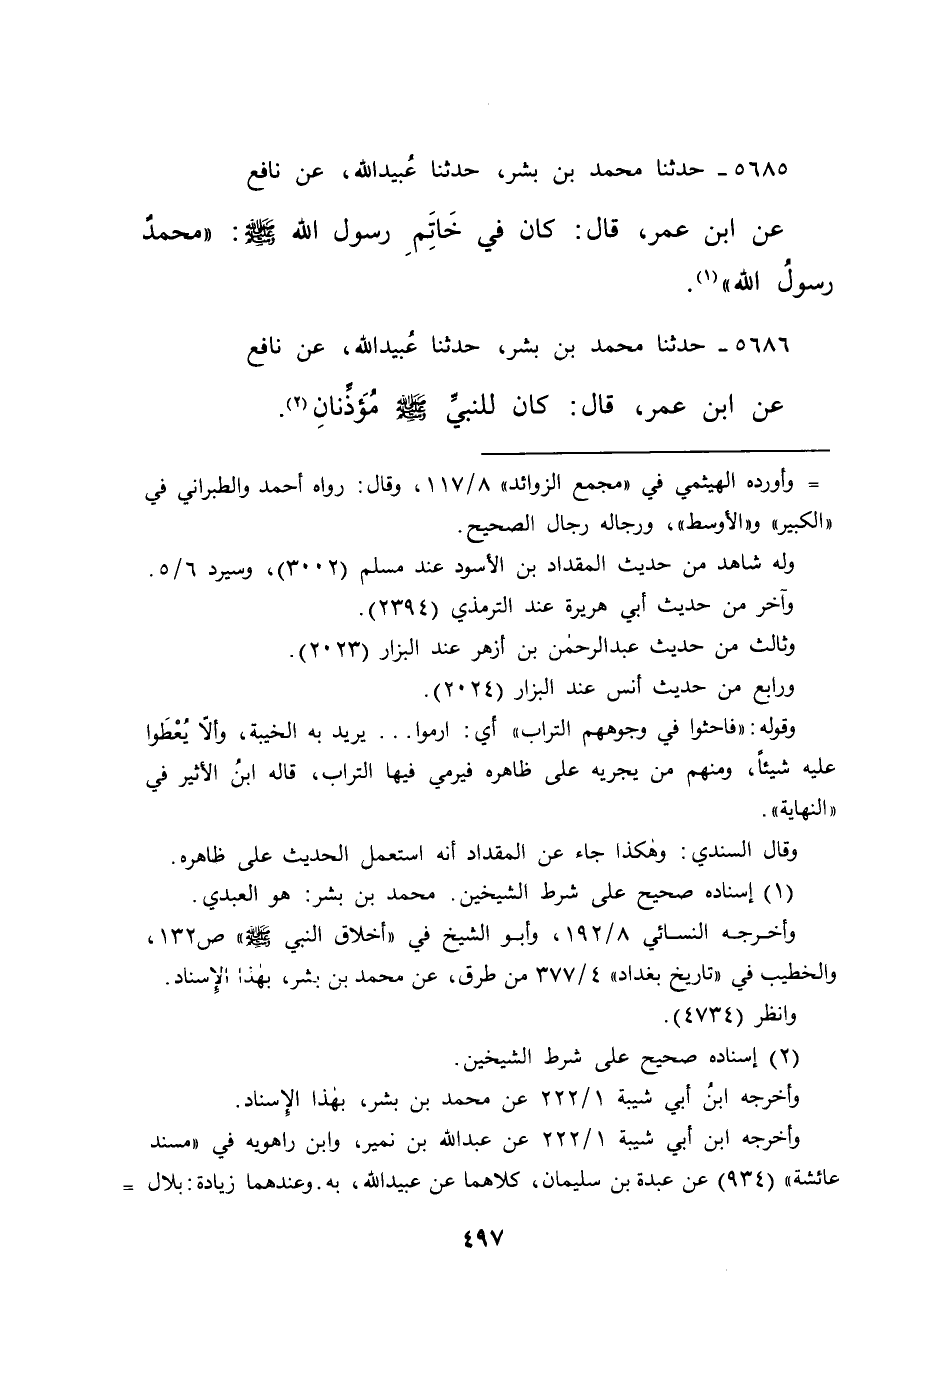 ٥٦٨٥ ـ حدثنا محمد بن بشر، حدثنا عُبيدالله، عن نافع
عن ابن عمر، قال: كان في خَاتَمِ رسول الله ﷺ: «محمدٌ
رسولُ الله»(١).
٥٦٨٦ ـ حدثنا محمد بن بشر، حدثنا عُبيدالله، عن نافع
عن ابن عمر، قال: كان للنبيِّ ﷺ مُؤَذِّنانِ(٢).
= وأورده الهيثمي في «مجمع الزوائد» ١١٧/٨، وقال: رواه أحمد والطبراني في
«الكبير» و«الأوسط»، ورجاله رجال الصحيح.
وله شاهد من حديث المقداد بن الأسود عند مسلم (٣٠٠٢)، وسيرد ٥/٦.
وآخر من حديث أبي هريرة عند الترمذي (٢٣٩٤).
وثالث من حديث عبدالرحمٰن بن أزهر عند البزار (٢٠٢٣).
ورابع من حديث أنس عند البزار (٢٠٢٤).
وقوله: «فاحثوا في وجوههم التراب» أي: ارموا... يريد به الخيبة، وألّا يُعْطَوا
عليه شيئاً، ومنهم من يجريه على ظاهره فيرمي فيها التراب، قاله ابنُ الأثير في
«النهاية».
وقال السندي: وهٰكذا جاء عن المقداد أنه استعمل الحديث على ظاهره.
(١) إسناده صحيح على شرط الشيخين. محمد بن بشر: هو العبدي.
وأخرجه النسائي ١٩٢/٨، وأبو الشيخ في «أخلاق النبي ﷺ» ص١٣٢،
والخطيب في «تاريخ بغداد» ٣٧٧/٤ من طرق، عن محمد بن بشر، بهٰذا الإسناد.
وانظر (٤٧٣٤).
(٢) إسناده صحيح على شرط الشيخين.
وأخرجه ابنُ أبي شيبة ٢٢٢/١ عن محمد بن بشر، بهٰذا الإسناد.
وأخرجه ابن أبي شيبة ٢٢٢/١ عن عبدالله بن نمير، وابن راهويه في «مسند
عائشة» (٩٣٤) عن عبدة بن سليمان، كلاهما عن عبيدالله، به. وعندهما زيادة: بلال =
٤٩٧